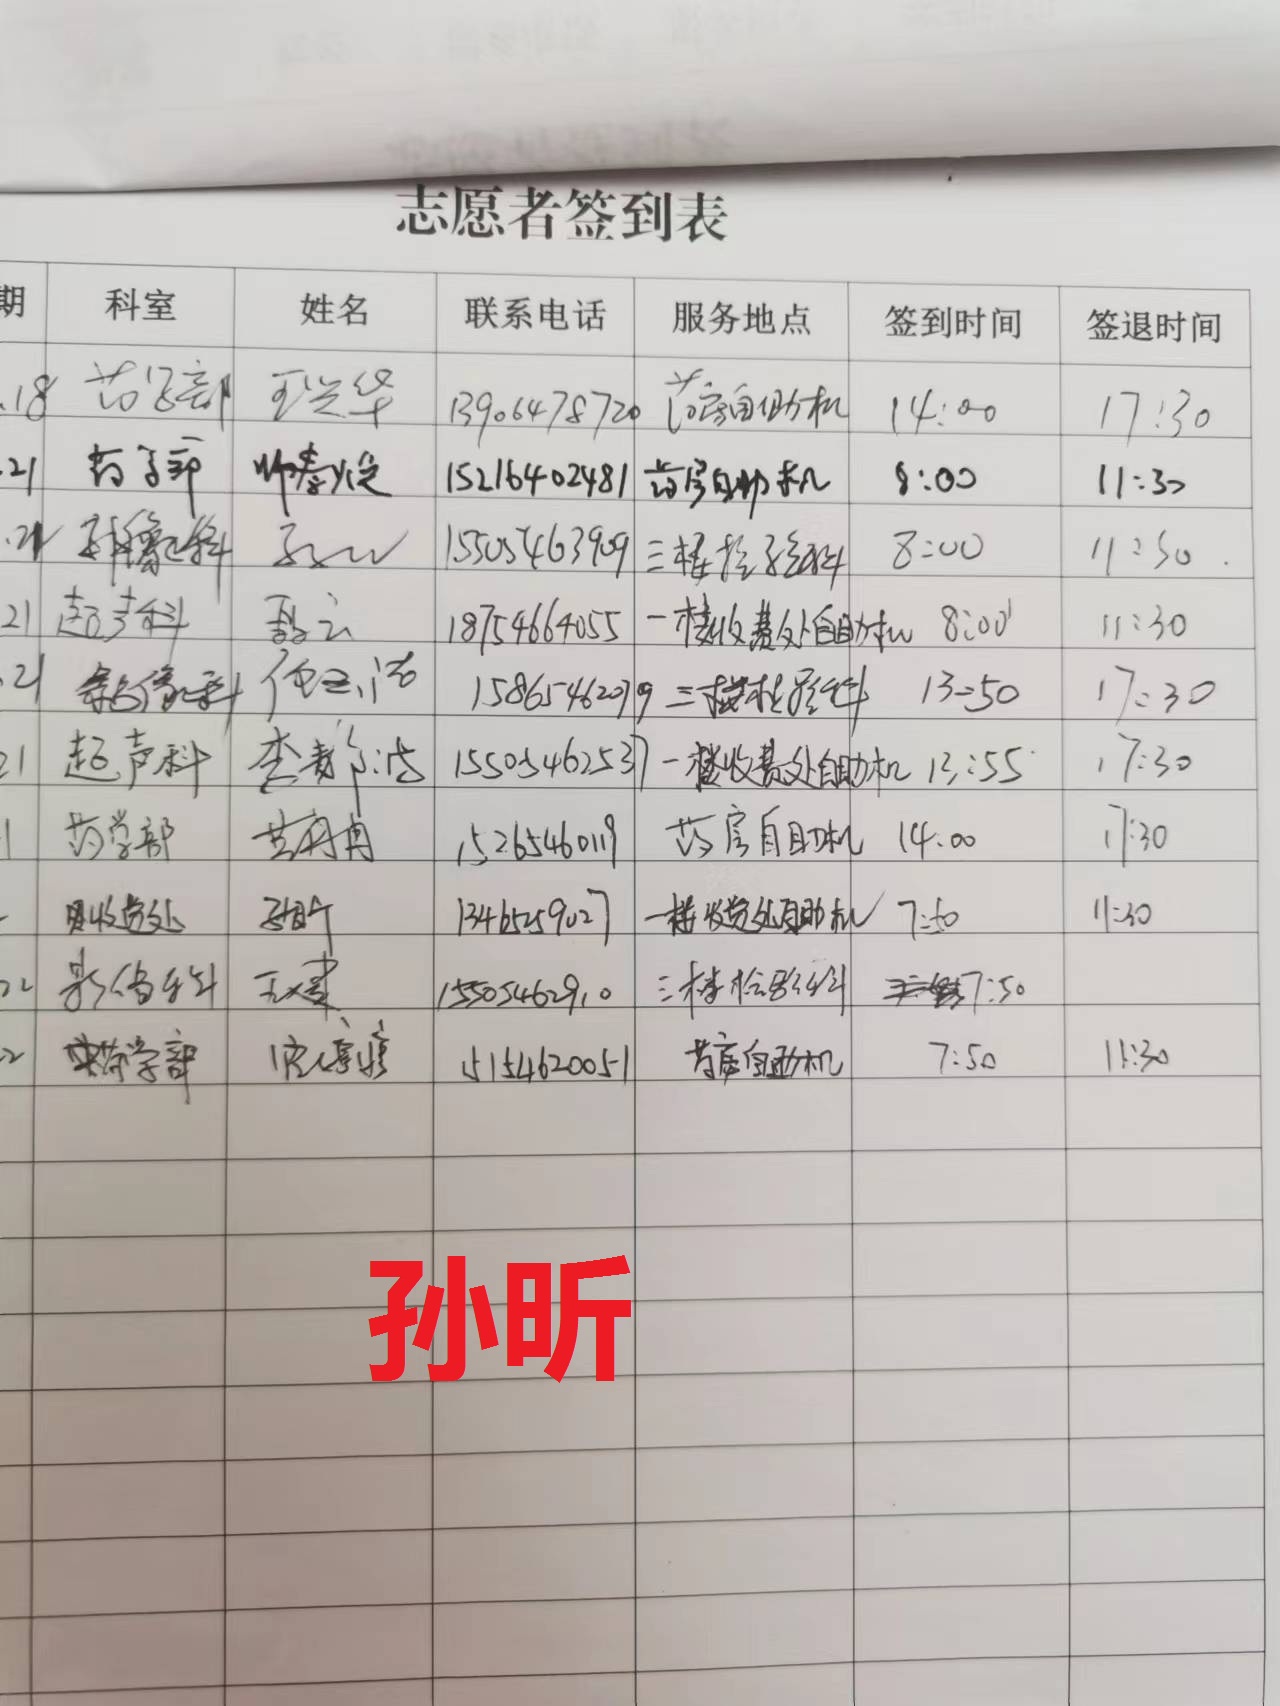 志愿者签到表
期 科室 姓名 联系电话 服务地点 签到时间 签退时间
.18 药学部 13906478720 药房自助机 14:00 17:30
.21 药学部 15216402481 药房自助机 8:00 11:30
.21 影像科 15505463909 三楼 8:00 11:30
21 超声科 18754664055 一楼收费处自助机 8:00 11:30
.21 影像科 三楼 13:50 17:30
21 超声科 15505462537 一楼收费处自助机 13:55 17:30
1 药学部 15265460119 药房自助机 14:00 17:30
收费处 孙昕 13465259027 一楼收费处自助机 7:50 11:30
22 影像科 三楼 7:50
2 药学部 15154620051 药房自助机 7:50 11:30
孙昕